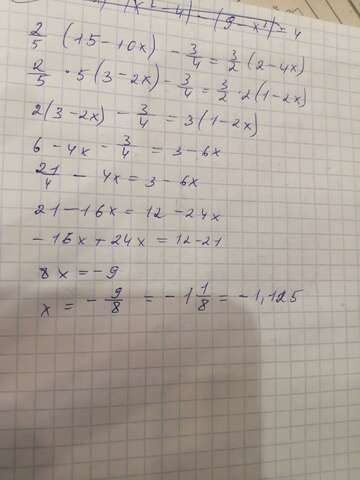 |x²-4| - (9-x²) = 4
2/5 (15-10x) - 3/4 = 3/2 (2-4x)
2/5 · 5(3-2x) - 3/4 = 3/2 · 2(1-2x)
2(3-2x) - 3/4 = 3(1-2x)
6 - 4x - 3/4 = 3 - 6x
21/4 - 4x = 3 - 6x
21 - 16x = 12 - 24x
-16x + 24x = 12-21
8x = -9
x = -9/8 = -1 1/8 = -1,125